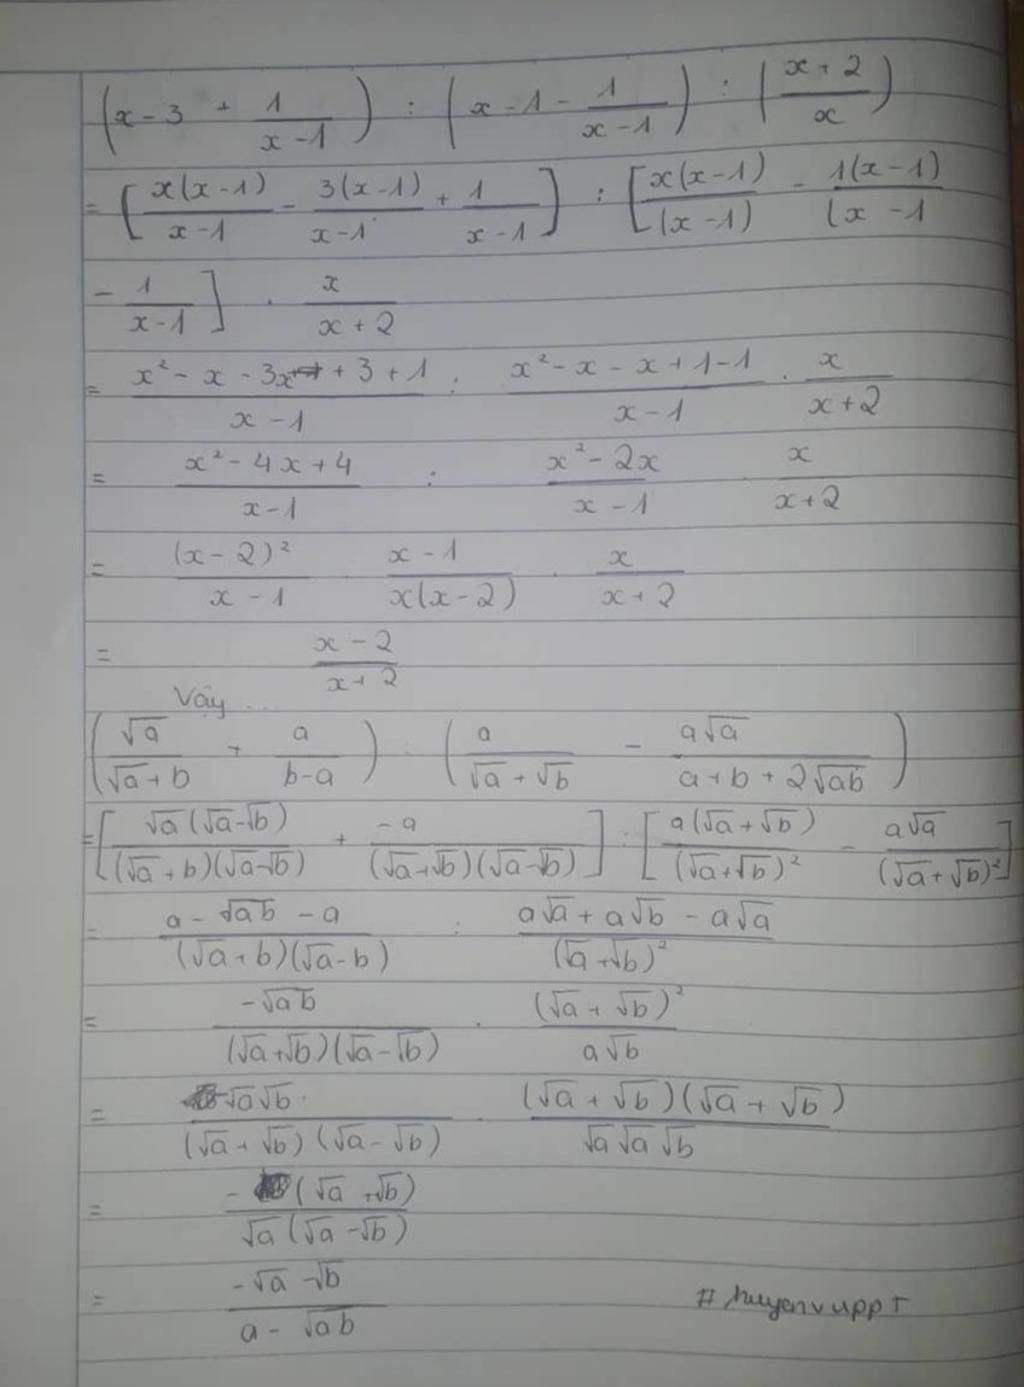 (x - 3 + 1/(x - 1)) : (x - 1 - 1/(x - 1)) : ((x + 2)/x)
= [x(x - 1)/(x - 1) - 3(x - 1)/(x - 1) + 1/(x - 1)] : [x(x - 1)/(x - 1) - 1(x - 1)/(x - 1
- 1/(x - 1)] . x/(x + 2)
= (x² - x - 3x + 3 + 1)/(x - 1) : (x² - x - x + 1 - 1)/(x - 1) . x/(x + 2)
= (x² - 4x + 4)/(x - 1) : (x² - 2x)/(x - 1) . x/(x + 2)
= (x - 2)²/(x - 1) . (x - 1)/(x(x - 2)) . x/(x + 2)
= (x - 2)/(x + 2)
Vậy ...
(√a/(√a + b) + a/(b - a)) : (a/(√a + √b) - a√a/(a + b + 2√ab))
= [√a(√a - √b)/((√a + b)(√a - √b)) + -a/((√a + √b)(√a - √b))] : [a(√a + √b)/(√a + √b)² - a√a/(√a + √b)²]
= (a - √ab - a)/((√a + b)(√a - b)) : (a√a + a√b - a√a)/(√a + √b)²
= -√ab/((√a + √b)(√a - √b)) . (√a + √b)²/(a√b)
= √a√b/((√a + √b)(√a - √b)) . (√a + √b)(√a + √b)/(√a√a√b)
= -(√a + √b)/(√a(√a - √b))
= (-√a - √b)/(a - √ab)
# huyenvuppt